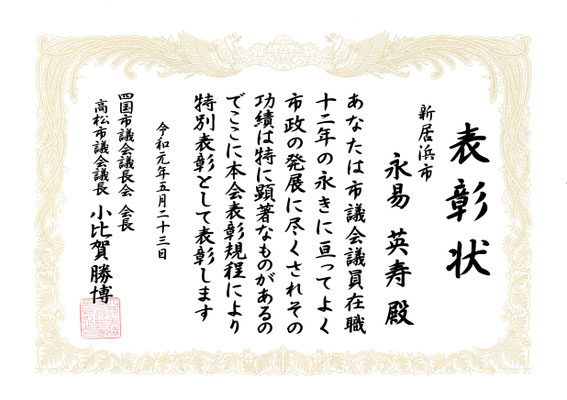 表彰状
新居浜市
永易 英寿 殿
あなたは市議会議員在職
十二年の永きに亘ってよく
市政の発展に尽くされその
功績は特に顕著なものがあるの
でここに本会表彰規程により
特別表彰として表彰します
令和元年五月二十三日
四国市議会議長会 会長
高松市議会議長 小比賀 勝博